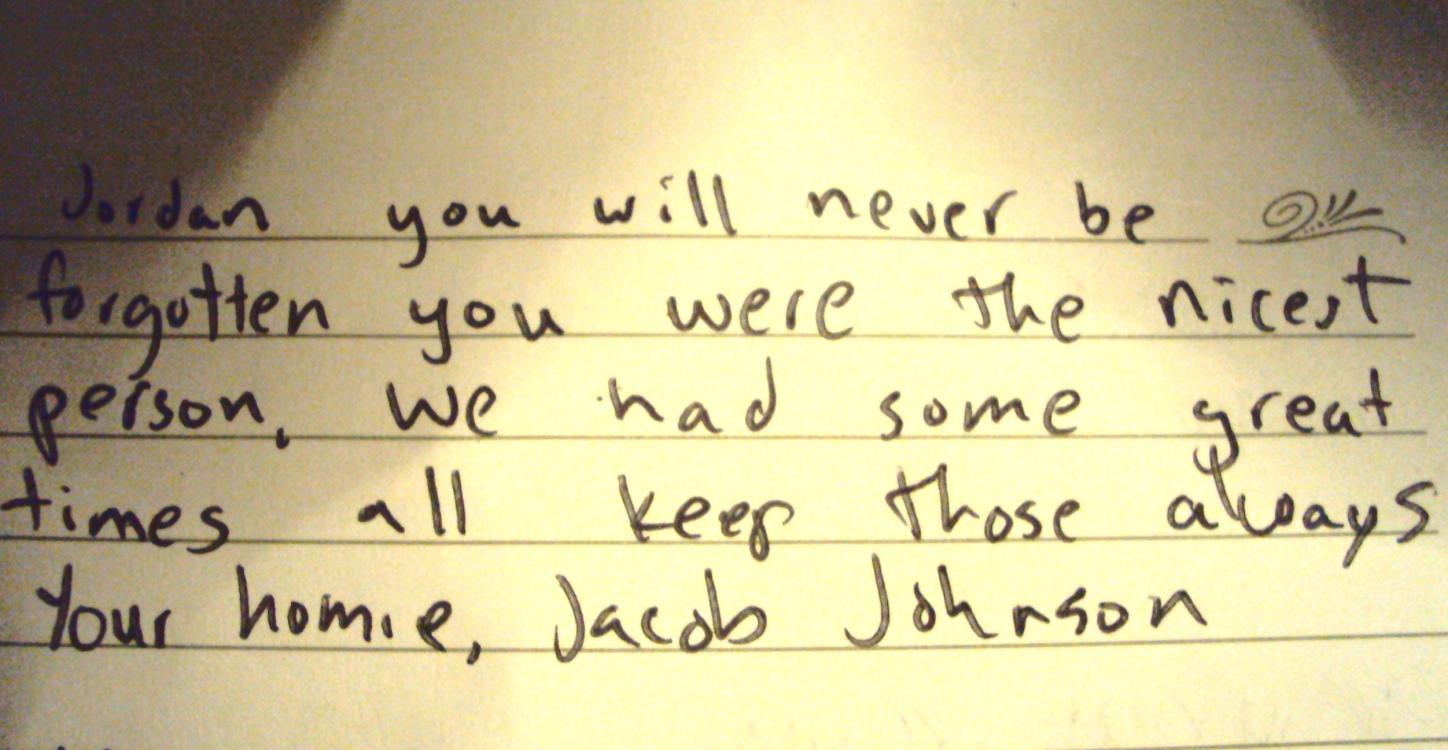 Jordan you will never be
forgotten you were the nicest
person, we had some great
times all keep those always
Your homie, Jacob Johnson